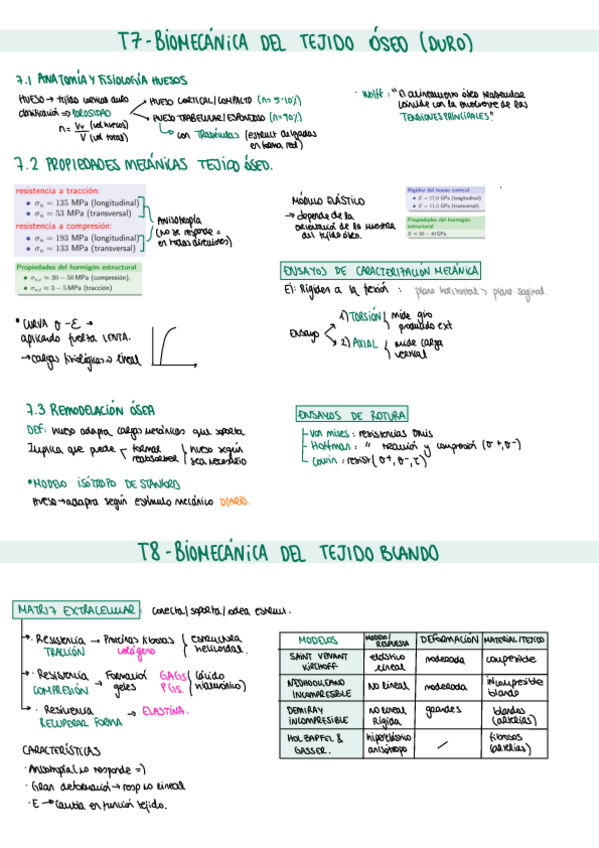 T7-BIOMECÁNICA DEL TEJIDO ÓSEO (DURO)
7.1 ANATOMÍA Y FISIOLOGÍA HUESOS
HUESO → tejido conectivo duro
clasificación ⇒ POROSIDAD
n = Vv (vol huecos)
V (vol total)
HUESO CORTICAL/COMPACTO (n=5-10%)
HUESO TRABECULAR/ESPONJOSO (n=90%)
con Trabéculas (estruct delgadas
en forma red)
· Wolff: "n alineamiento óseo trabecular
coincide con la envolvente de las
TENSIONES PRINCIPALES"
7.2 PROPIEDADES MECÁNICAS TEJIDO ÓSEO.
resistencia a tracción:
• σu = 135 MPa (longitudinal)
• σu = 53 MPa (transversal)
resistencia a compresión:
• σu = 193 MPa (longitudinal)
• σu = 133 MPa (transversal)
Anisotropía
(no se responde =
en todas direcciones)
Propiedades del hormigón estructural
• σu,c ≈ 30 − 50 MPa (compresión),
• σu,t ≈ 3 − 5 MPa (tracción)
MÓDULO ELÁSTICO
→ depende de la
orientación de la muestra
del tejido óseo.
Rigidez del hueso cortical
• E = 17,0 GPa (longitudinal)
• E = 11,5 GPa (transversal)
Propiedades del hormigón
estructural
E ≈ 30 − 40 GPa
ENSAYOS DE CARACTERIZACIÓN MECÁNICA
Ej: Rigidez a la flexión : plano horizontal > plano sagital.
Ensayo
1) TORSIÓN mide giro
producido ext
2) AXIAL mide carga
vertical
• CURVA σ-ε →
aplicando fuerza LENTA.
→ cargas fisiológicas ⇒ lineal
7.3 REMODELACIÓN ÓSEA
DEF: hueso adapta cargas mecánicas que soporta
Implica que puede formar
reabsorber
hueso según
sea necesario
• MODELO ISÓTROPO DE STANFORD
Hueso → adapta según estímulo mecánico DIARIO.
ENSAYOS DE ROTURA
Von mises: resistencias
Hoffman: " tracción y compresión (σ+, σ-)
Cowin: resist (σ+, σ-, τ)
T8-BIOMECÁNICA DEL TEJIDO BLANDO
MATRIZ EXTRACELULAR: conecta/soporta/rodea estruct.
· Resistencia → Proteínas fibrosas estructura
TRACCIÓN colágeno helicoidal.
· Resistencia → Formación GAGs (ácido
COMPRESIÓN geles PGs. hialurónico)
· Resistencia → ELASTINA.
RECUPERAR FORMA
CARACTERÍSTICAS
· Anisotropía (no responde =)
· Gran deformación → resp no lineal
· E → cambia en función tejido.
MODELOS MODELO/RESPUESTA DEFORMACIÓN MATERIAL/TEJIDO
SAINT VENANT KIRCHOFF elástico lineal moderada compresible
NEOHOOKEANO INCOMPRESIBLE No lineal moderada incompresible blando
DEMIRAY INCOMPRESIBLE no lineal Rígida grandes blandos (arterias)
HOLZAPFEL & GASSER. hiperelástico anisótropo / fibrosos (arterias)